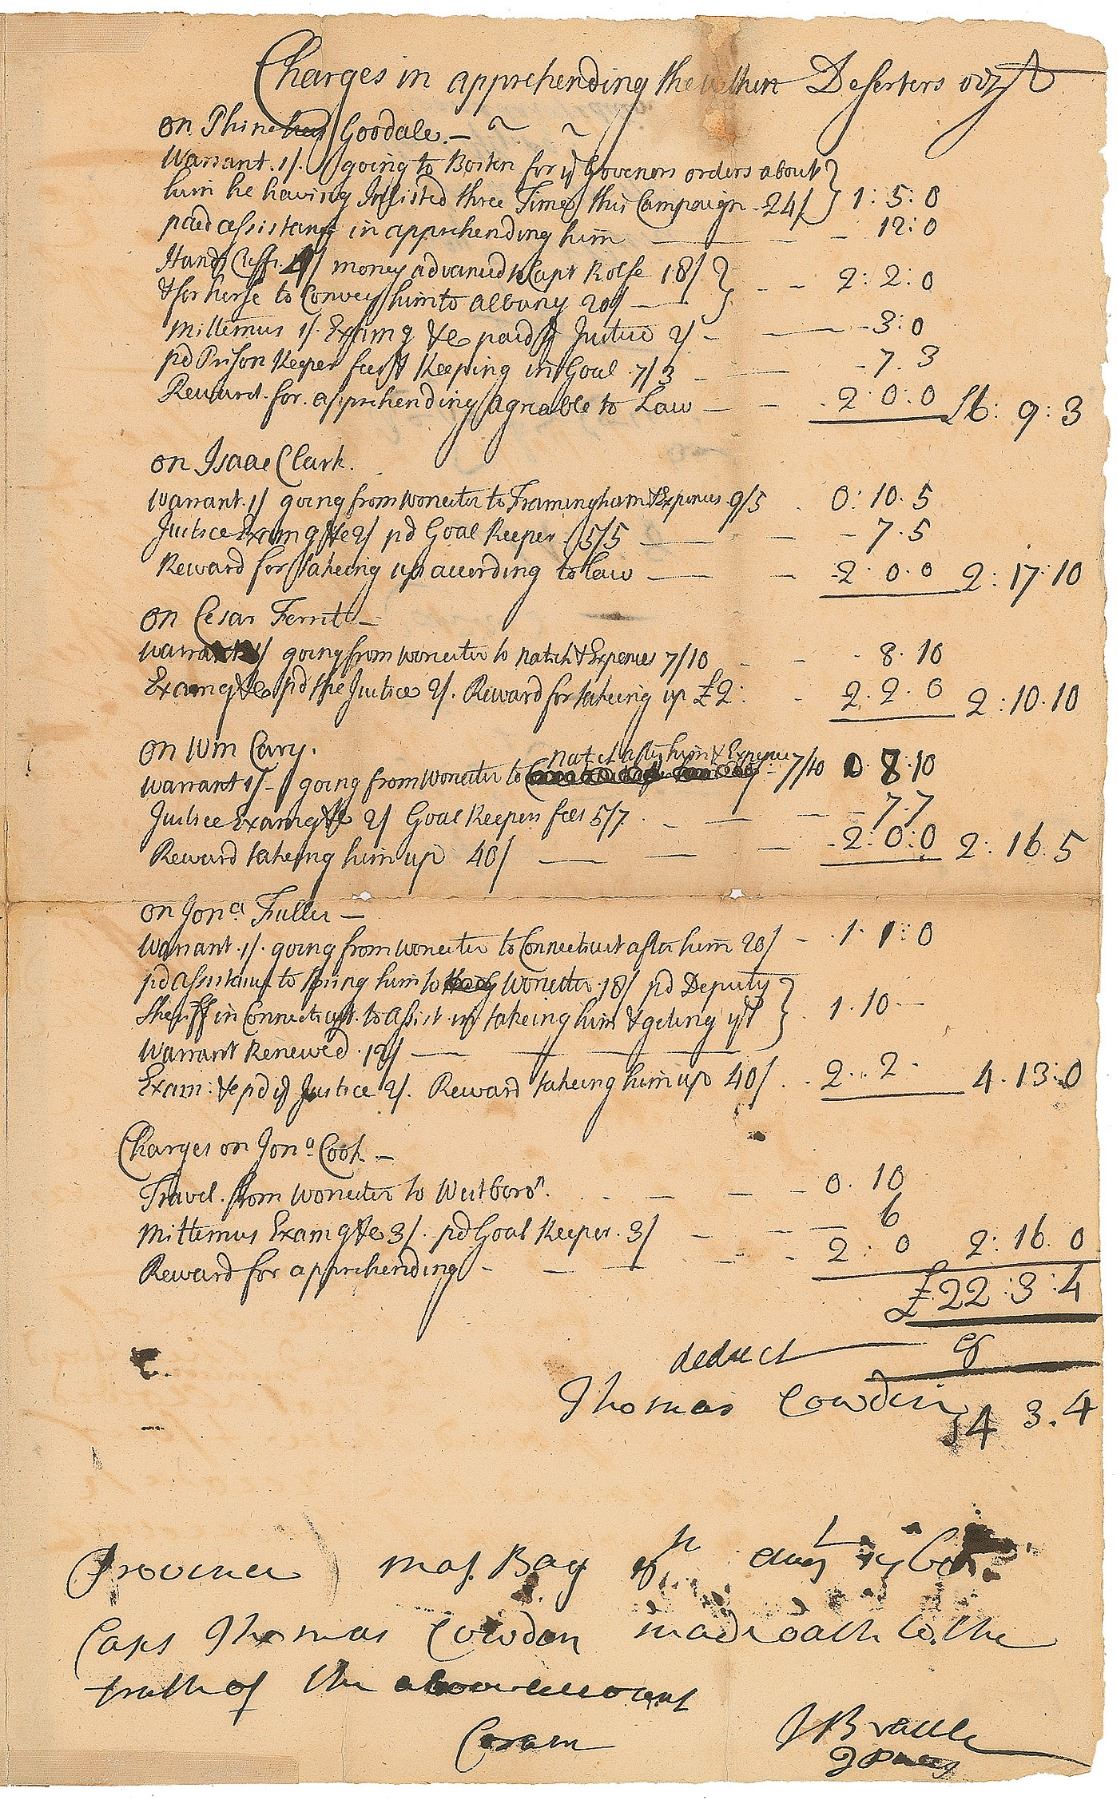 Charges in apprehending the within Deserters viz.t
on Phinehas Goodale. -
Warrant. 1/. going to Boston for ye Governors orders about
him he having Inlisted three Times this Campaign 24/ } 1: 5: 0
paid assistance in apprehending him 12: 0
Hand Cuffs 4/ money advanced to Capt Rolfe 18/
& for horse to Convey him to Albany 20/ } 2: 2: 0
Mittemus 1/. Examg &c paid ye Justice 2/ - 3: 0
pd Prison Keeper fees & Keeping in Goal 7/3 7. 3
Reward for apprehending agreable to Law 2: 0: 0 £6: 9: 3
on Isaac Clark.
Warrant. 1/ going from Worcester to Framingham & Expences 9/5 0: 10. 5
Justice Examg &c 2/ pd Goal Keeper 5/5 7. 5
Reward for takeing up according to law 2. 0. 0 2: 17: 10
on Cesar Ferrit -
Warrant 1/ going from Worcester to Natick & Expences 7/10 8. 10
Examg &c pd the Justice 2/. Reward for takeing up £2: 2. 2. 0 2: 10. 10
on Wm Cary.
Natick after him & Expence
Warrant 1/- going from Worcester to 7/10 0 8: 10
Justice Examg &c 2/ Goal Keepers fees 5/7 7. 7
Reward takeing him up 40/ 2: 0: 0 2: 16. 5
on Jona Fuller -
Warrant. 1/. going from Worcester to Connecticut after him 20/ - 1. 1: 0
pd Assistance to bring him to Worcester 18/ pd Deputy
Sheriff in Connecticut. to Assist in takeing him & geting ye
Warrant Renewed. 12/ } 1. 10
Exam: &c pd ye Justice 2/. Reward takeing him up 40/. 2.. 2 4. 13. 0
Charges on Jona Cook -
Travel. from Worcester to Westboro. 0. 10
Mittemus Examg &c 3/. pd Goal Keeper. 3/ 6
Reward for apprehending 2: 0 2: 16. 0
£22: 3: 4
deduct 8
Thomas Cowdin 14 3. 4
Province Mas. Bay
Capt Thomas Cowdin made oath to the
truth of the above account
Coram J Brattle